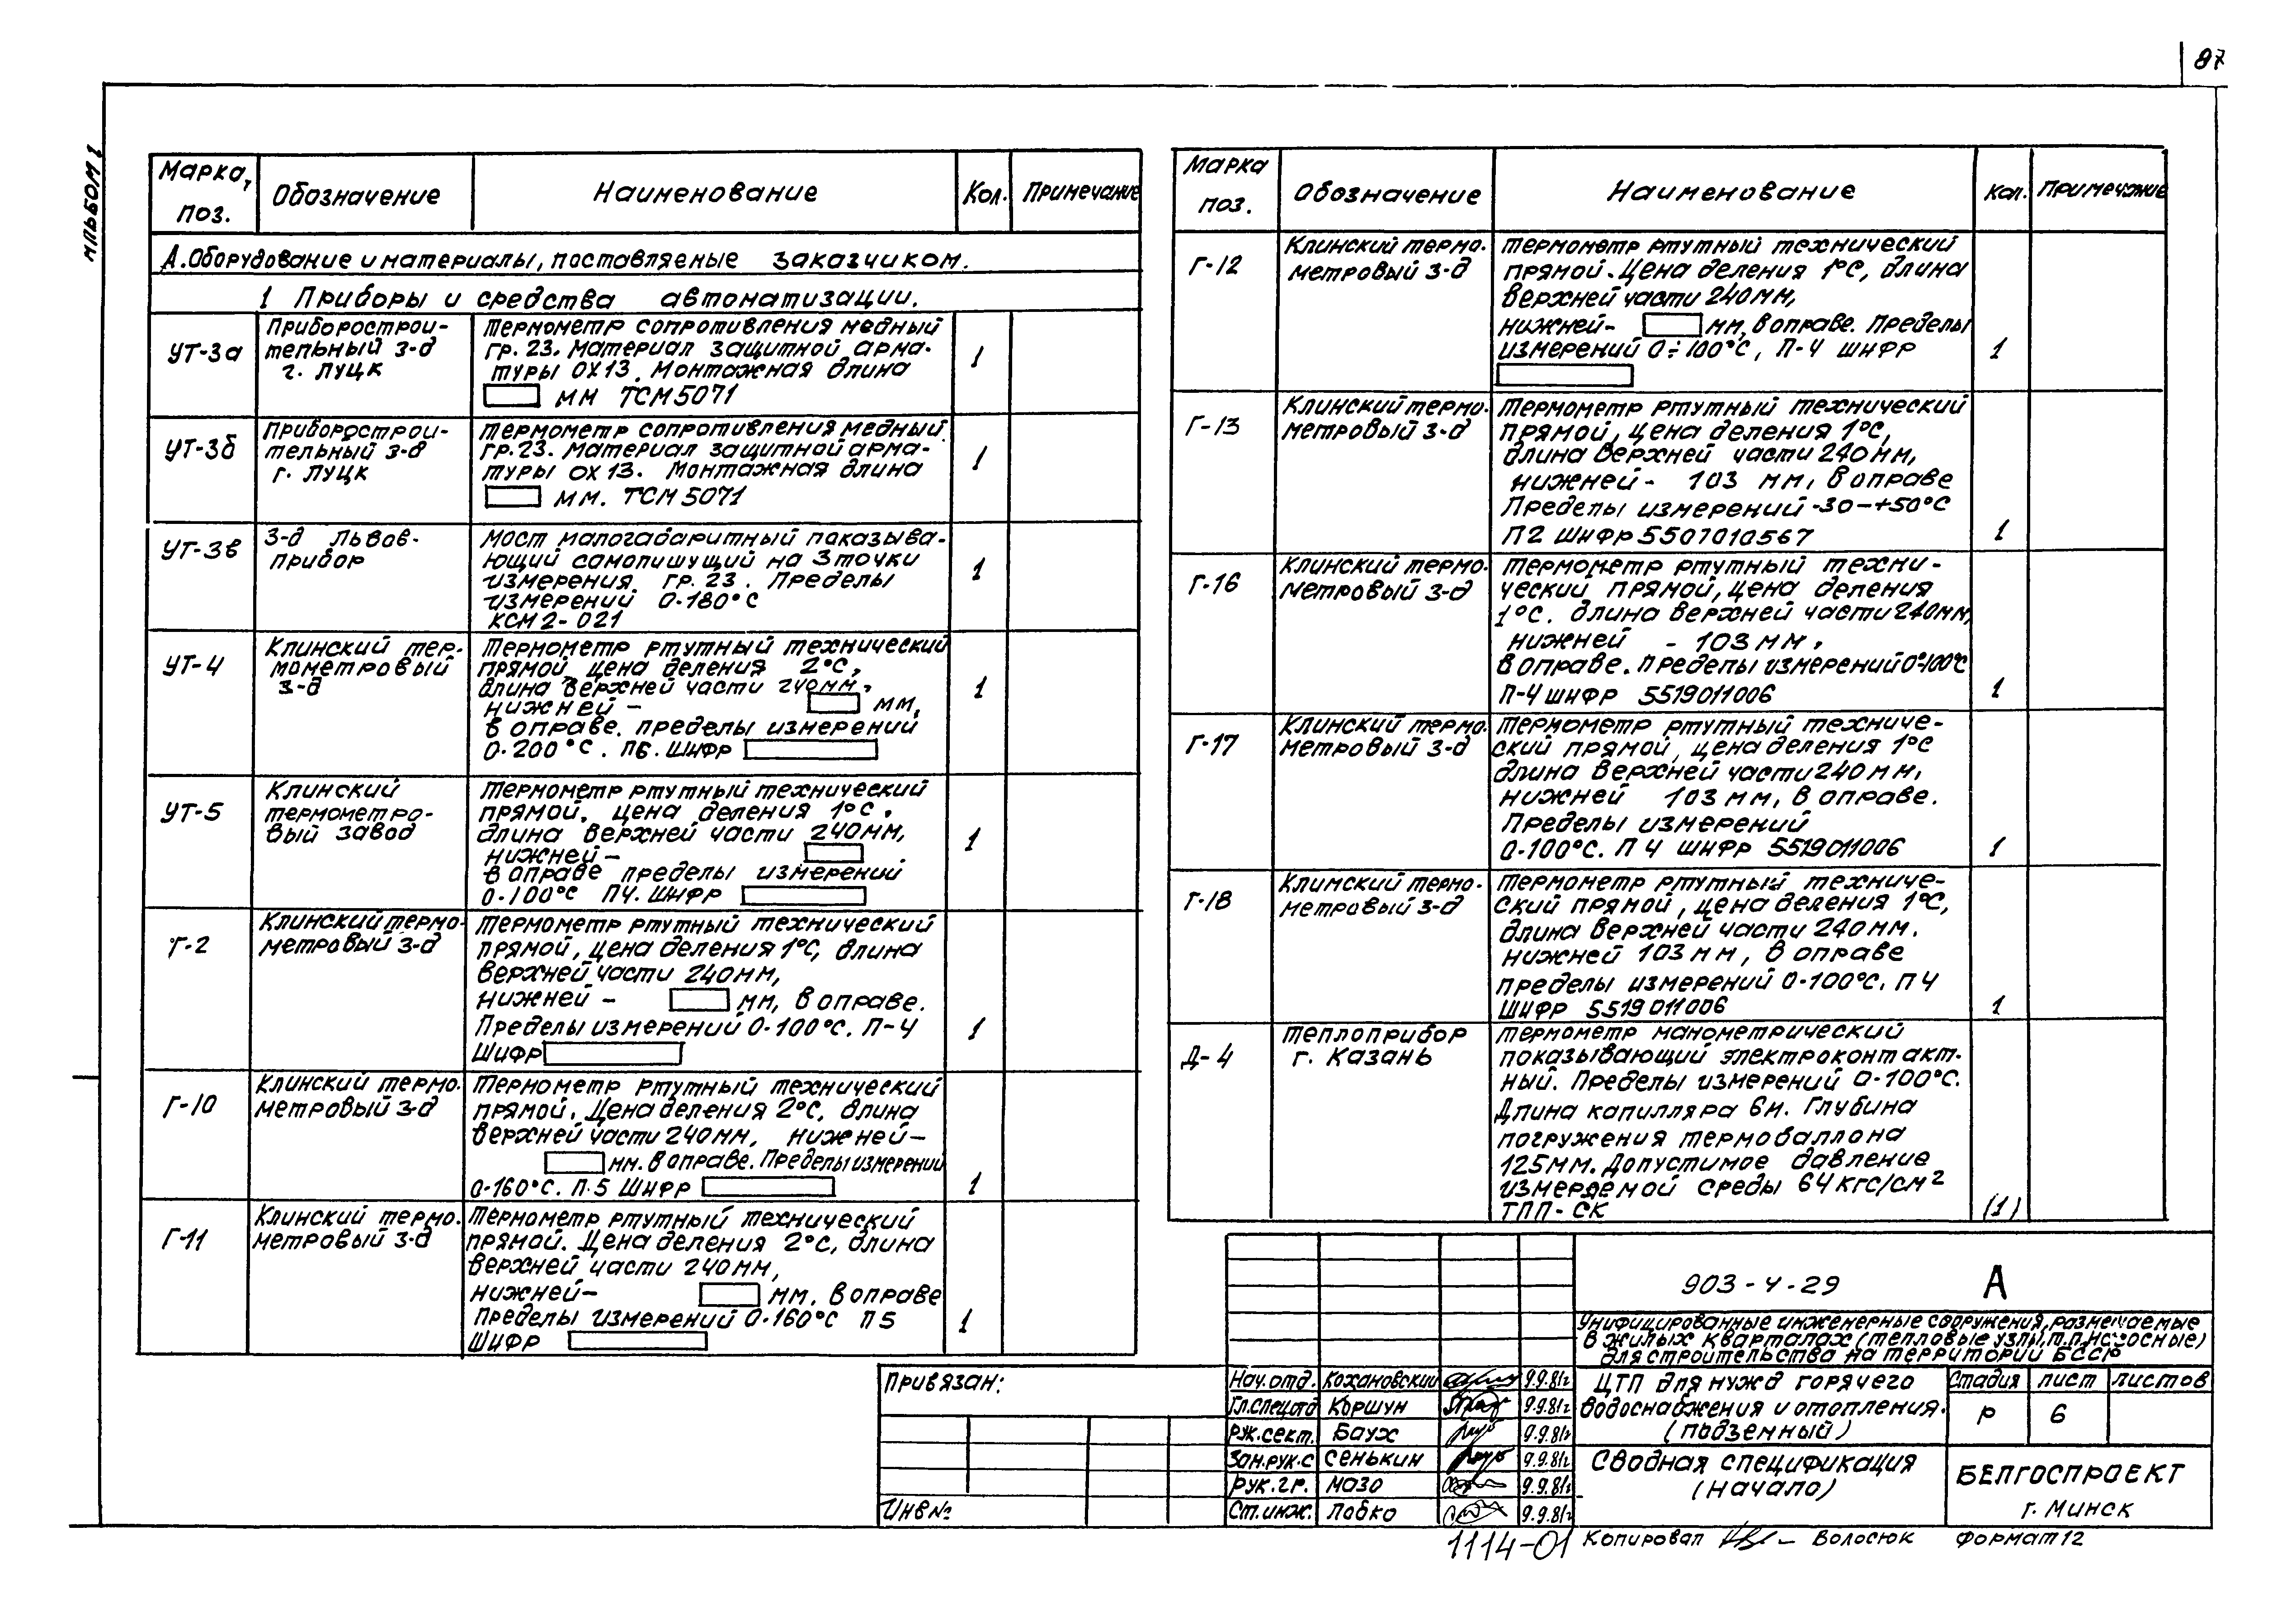 87
Альбом 1
Марка, поз.
Обозначение
Наименование
Кол.
Примечание
А. Оборудование и материалы, поставляемые заказчиком.
1 Приборы и средства автоматизации.
УТ-3а
Приборострои-
тельный з-д
г. Луцк
Термометр сопротивления медный
гр. 23. Материал защитной арма-
туры ОХ13. Монтажная длина
мм ТСМ5071
1
УТ-3б
Приборострои-
тельный з-д
г. Луцк
Термометр сопротивления медный
гр. 23. Материал защитной арма-
туры ОХ13. Монтажная длина
мм. ТСМ5071
1
УТ-3в
З-д Львов-
прибор
Мост малогабаритный показыва-
ющий самопишущий на 3 точки
измерения. гр. 23. Пределы
измерений 0-180°С
КСМ2-021
1
УТ-4
Клинский тер-
мометровый
з-д
Термометр ртутный технический
прямой, цена деления 2°С,
длина верхней части 240мм,
нижней - мм,
в оправе. пределы измерений
0-200°С. П6. Шифр
1
УТ-5
Клинский
термометро-
вый завод
Термометр ртутный технический
прямой, цена деления 1°С,
длина верхней части 240мм,
нижней -
в оправе пределы измерений
0-100°С П4. Шифр
1
Г-2
Клинский термо-
метровый з-д
Термометр ртутный технический
прямой, цена деления 1°С, длина
верхней части 240мм,
нижней - мм, в оправе.
Пределы измерений 0-100°С. П-4
Шифр
1
Г-10
Клинский термо-
метровый з-д
Термометр ртутный технический
прямой. Цена деления 2°С, длина
верхней части 240мм, нижней -
мм. в оправе. Пределы измерений
0-160°С. П.5 Шифр
1
Г-11
Клинский термо-
метровый з-д
Термометр ртутный технический
прямой. Цена деления 2°С, длина
верхней части 240мм,
нижней - мм. в оправе
Пределы измерений 0-160°С П5
Шифр
1
Марка поз.
Обозначение
Наименование
Кол.
Примечание
Г-12
Клинский термо-
метровый з-д
Термометр ртутный технический
прямой. Цена деления 1°С, длина
верхней части 240мм,
нижней - мм, в оправе. Пределы
измерений 0÷100°С, П-4 шифр
1
Г-13
Клинский термо-
метровый з-д
Термометр ртутный технический
прямой, цена деления 1°С,
длина верхней части 240мм,
нижней - 103 мм, в оправе
Пределы измерений -30-+50°С
П2 шифр 5507010567
1
Г-16
Клинский термо-
метровый з-д
Термометр ртутный техни-
ческий прямой, цена деления
1°С. длина верхней части 240мм,
нижней - 103 мм,
в оправе. Пределы измерений 0-100°С
П-4 шифр 5519011006
1
Г-17
Клинский термо-
метровый з-д
Термометр ртутный техниче-
ский прямой, цена деления 1°С
длина верхней части 240мм,
нижней 103 мм, в оправе.
Пределы измерений
0-100°С. П4 шифр 5519011006
1
Г-18
Клинский термо-
метровый з-д
Термометр ртутный техниче-
ский прямой, цена деления 1°С,
длина верхней части 240мм.
нижней 103 мм, в оправе
пределы измерений 0-100°С. П4
Шифр 5519011006
1
Д-4
Теплоприбор
г. Казань
Термометр манометрический
показывающий электроконтакт-
ный. Пределы измерений 0-100°С.
Длина капилляра 6м. Глубина
погружения термобаллона
125мм. Допустимое давление
измеряемой среды 64кгс/см²
ТПП-СК
(1)
903-4-29 А
Унифицированные инженерные сооружения, размещаемые
в жилых кварталах (тепловые узлы, т.п. насосные)
для строительства на территории БССР
Привязан:
Инв №
Нач. отд. Кохановский 9.9.81г
Гл. спец отд Коршун 9.9.81г
Рук. сект. Баух 9.9.81г
Зам. рук. с Сенькин 9.9.81г
Рук. гр. Мазо 9.9.81г
Ст. инж. Лобко 9.9.81г
ЦТП для нужд горячего
водоснабжения и отопления.
(подземный)
Стадия Лист Листов
Р 6
Сводная спецификация
(начало)
БЕЛГОСПРОЕКТ
г. Минск
1114-01
Копировал Волосюк Формат 12